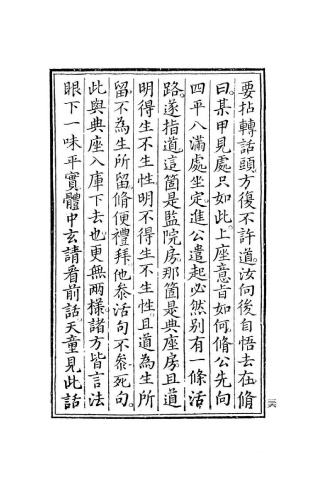 要拈轉話頭方復不許道汝向後自悟去在脩
曰某甲見處只如此上座意旨如何脩公先向
四平八滿處坐定進公遣起必然别有一條活
路遂指道這箇是監院房那箇是典座房且道
明得生不生性明不得生不生性且道為生所
留不為生所留脩便禮拜他叅活句不叅死句
此與典座入庫下去也更無兩樣諸方皆言法
眼下一味平實體中玄請看前話天童見此話